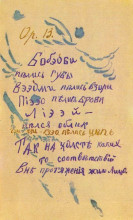 Ор. 13.
Бобэоби
пелись губы
Вээоми пелись взоры
Пиээо пелись брови
Лиэээй
пелся облик
пелась цепь
ТАК НА холсте каких
то соответствий
Вне протяжения жило Лицо